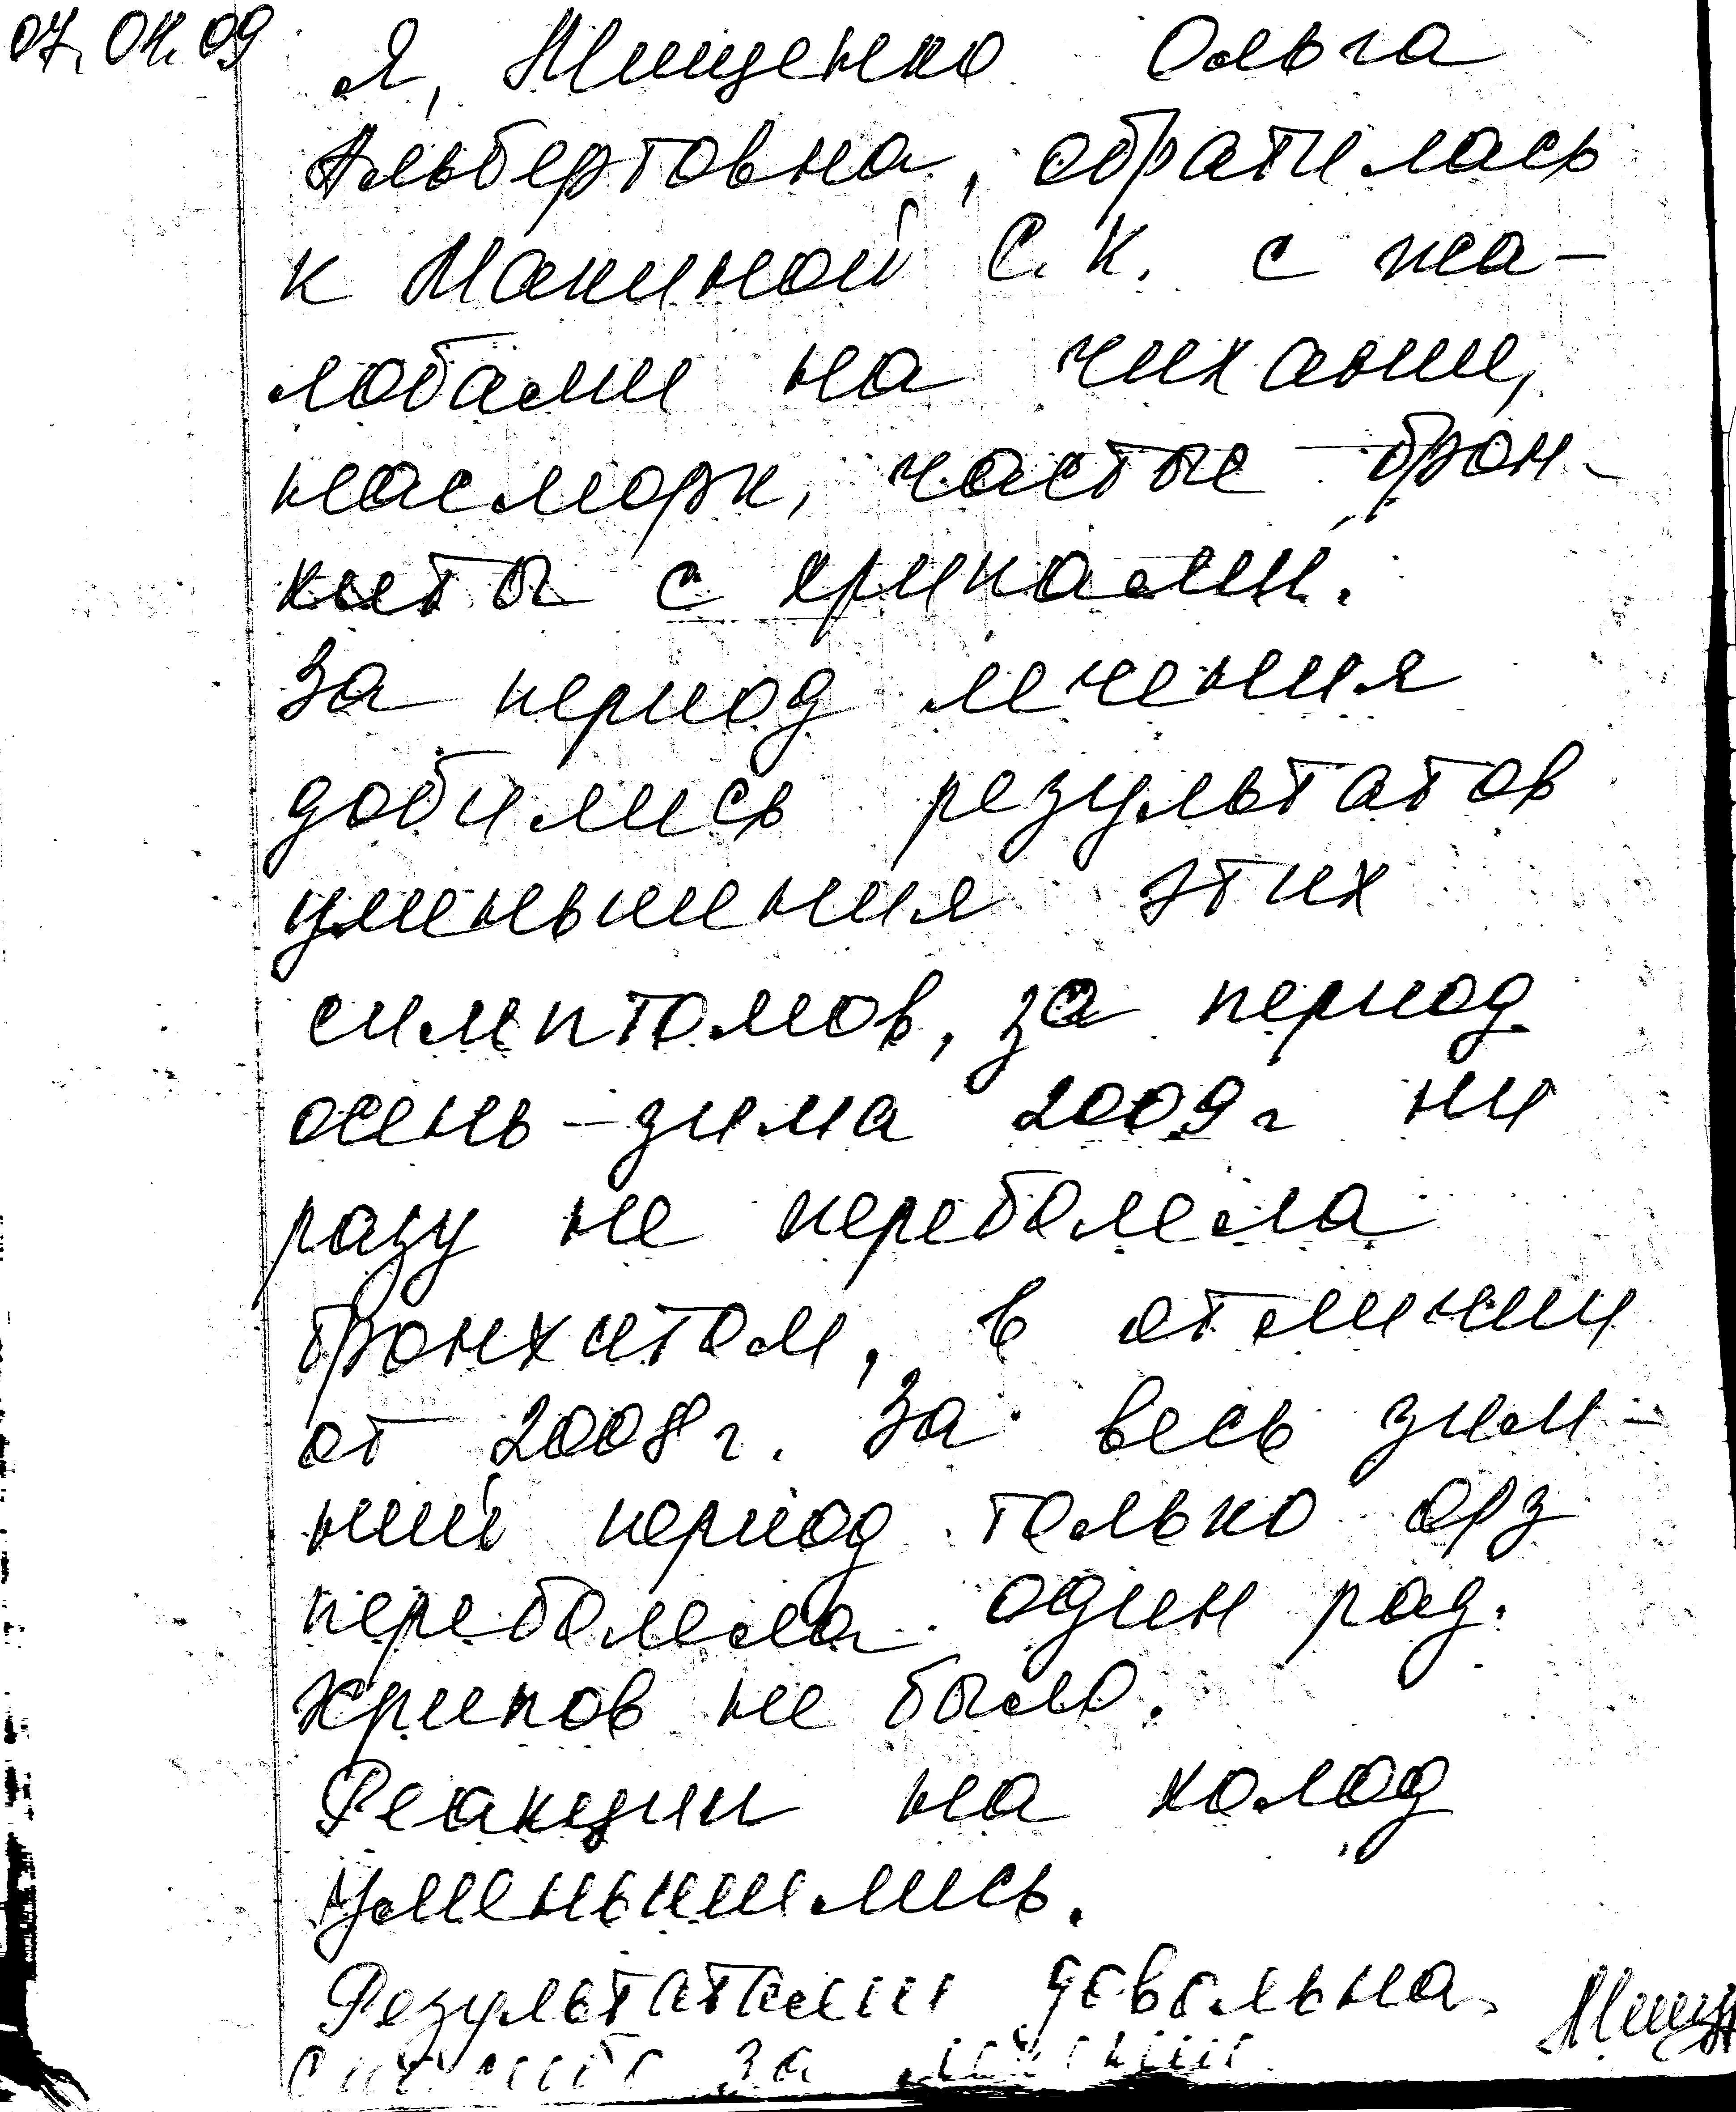 07.04.09 Я, Мищенко Ольга
Альбертовна, обратилась
к Макиной С.К. с жа-
лобами на чихание,
насморк, частые брон-
хиты с хрипами.
За период лечения
добились результатов
уменьшения этих
симптомов, за период
осень-зима 2009г ни
разу не переболела
бронхитом, в отличии
от 2008г. За весь зим-
ний период только орз
переболела один раз.
Хрипов не было.
Реакции на холод
уменьшились.
Результатами довольна.
Спасибо за лечение.